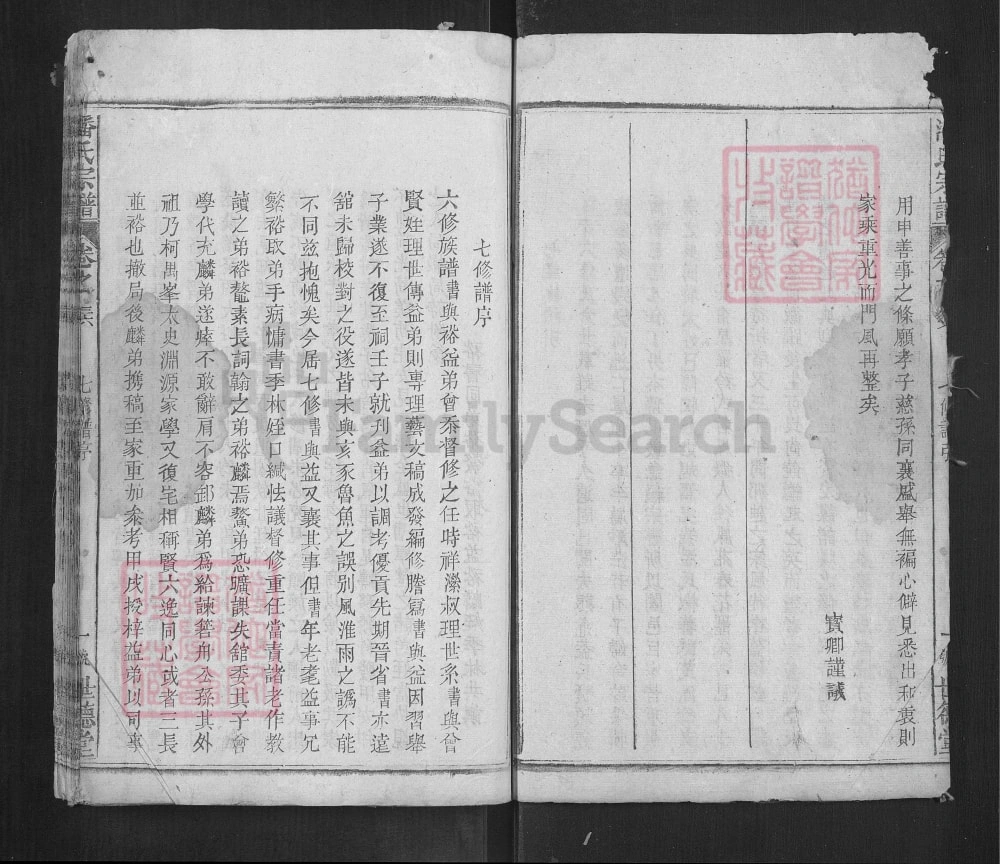 用申善事之條願孝子慈孫同襄盛舉無褊心僻見悉出私衷則
家乘重光而門風再整矣
寶卿謹識
七修譜序
六修族譜書與裕益弟會忝督修之任時祥濚叔理世系書與曾
賢姪理世傳益弟則專理藝文稿成發編修謄寫書與益因習舉
子業遂不復至祠壬子就刋益弟以調考優貢先期晉省書亦遠
舘未歸校對之役遂皆未與亥豕魯魚之誤別風淮雨之譌不能
不同兹抱愧矣今居七修書與益又襄其事但書年老耄益事冗
繁裕取弟手病慵書季林姪口緘怯議督修重任當責諸老作教
讀之弟裕鼇素長詞翰之弟裕麟焉鰲弟恐曠課失舘委其子會
學代尤麟弟遂瘁不敢辭肩不容卸麟弟為給諫碧舟公孫其外
祖乃柯禺峯太史淵源家學又復宅相稱賢六逸同心或者三長
並裕也撤局後麟弟携稿至家重加叅考甲戌授梓益弟以司事
潘氏宗譜
卷之
七修譜序
一
世德堂
FamilySearch